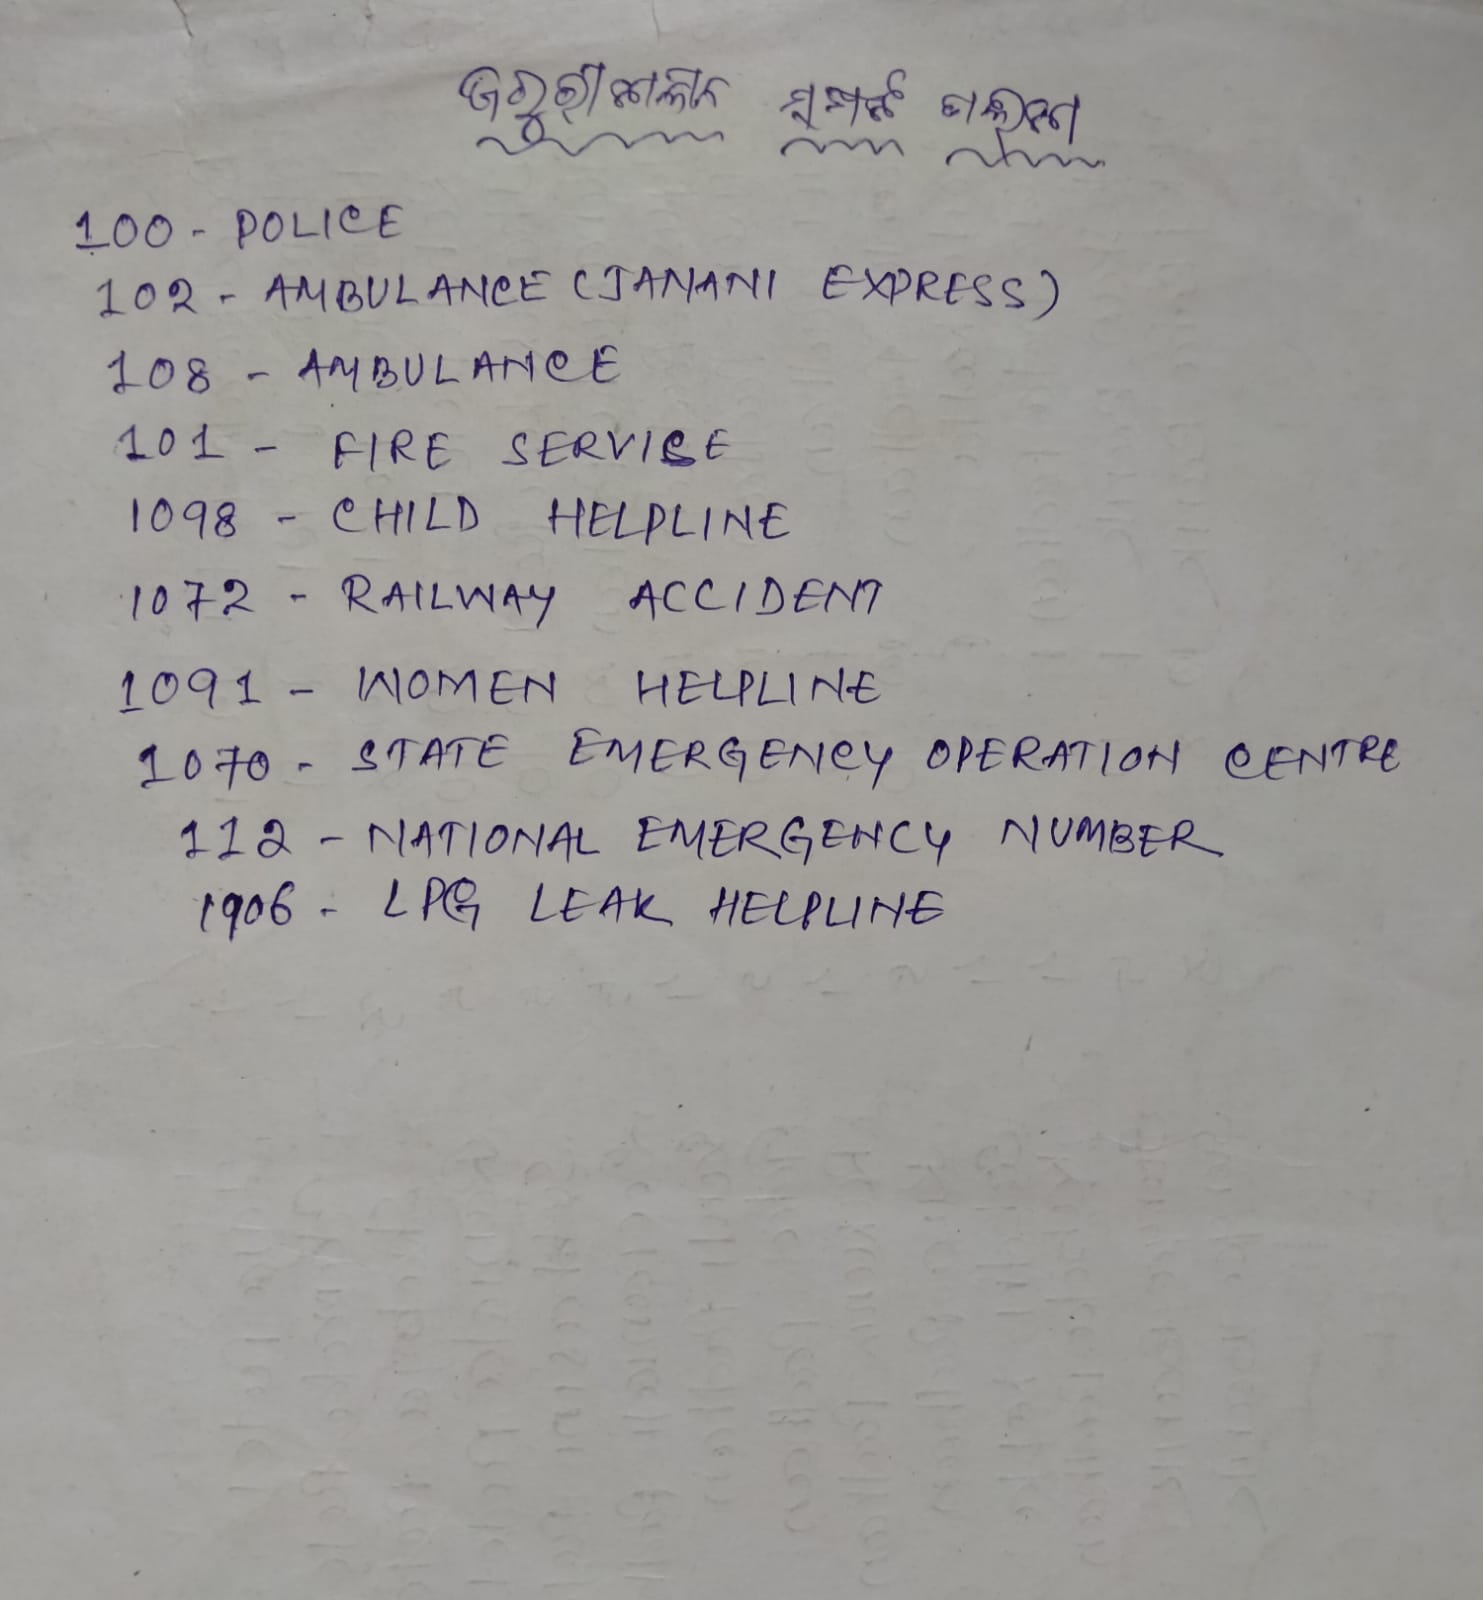 ଜରୁରୀକାଳୀନ ସମ୍ପର୍କ
100 - POLICE
102 - AMBULANCE (JANANI EXPRESS)
108 - AMBULANCE
101 - FIRE SERVICE
1098 - CHILD HELPLINE
1072 - RAILWAY ACCIDENT
1091 - WOMEN HELPLINE
1070 - STATE EMERGENCY OPERATION CENTRE
112 - NATIONAL EMERGENCY NUMBER
1906 - LPG LEAK HELPLINE